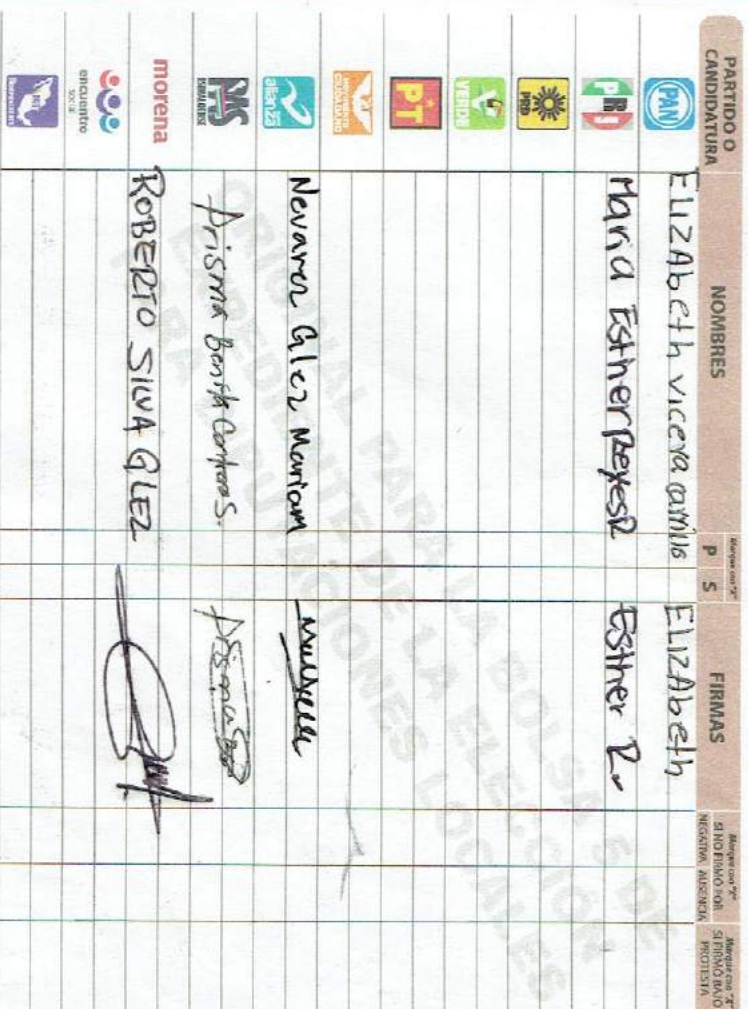 PARTIDO O CANDIDATURA NOMBRES Marque con "X" P S FIRMAS Marque con "X" SI NO FIRMÓ POR NEGATIVA AUSENCIA Marque con "X" SI FIRMÓ BAJO PROTESTA
PAN ELIZAbeth vicera ELIZAbeth
PRI Maria Esther Reyes R Esther R.
PRD
VERDE
PT
MOVIMIENTO CIUDADANO
alianza Nevarez Glez Mariam
PMS Prisma Contreras S. Prisma
morena ROBERTO SILVA GLEZ
encuentro social
ORIGINAL PARA LA BOLSA S DE
EXPEDIENTE DE LA ELECCIÓN
PARA DIPUTACIONES LOCALES